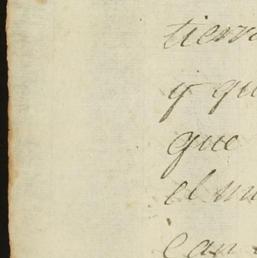 tierra
y qu
que
el mu
can